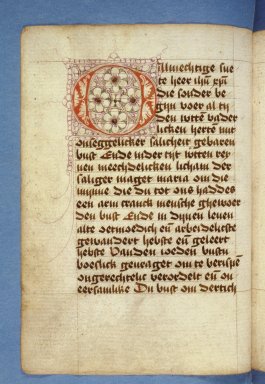 O Almechtige sue
te heer ihu xpi
die sonder be
gin voer al ty
den wtten vader
licken herte mit
onseggelicker salicheit gebaren
bust Ende inder tyt wtten rey
nen meechdelicken licham der
saliger maget maria om die
minne die du tot ons haddes
een arm cranck mensche ghewor
den bust Ende in dynen leuen
alte oetmoedich en arbeidelicste
gewandert hebste en geleert
hebste Vanden ioeden bustu
boeslick geuraget om te verispe
ongerechtelic verordelt en on
eersamlike Du bust om dertich